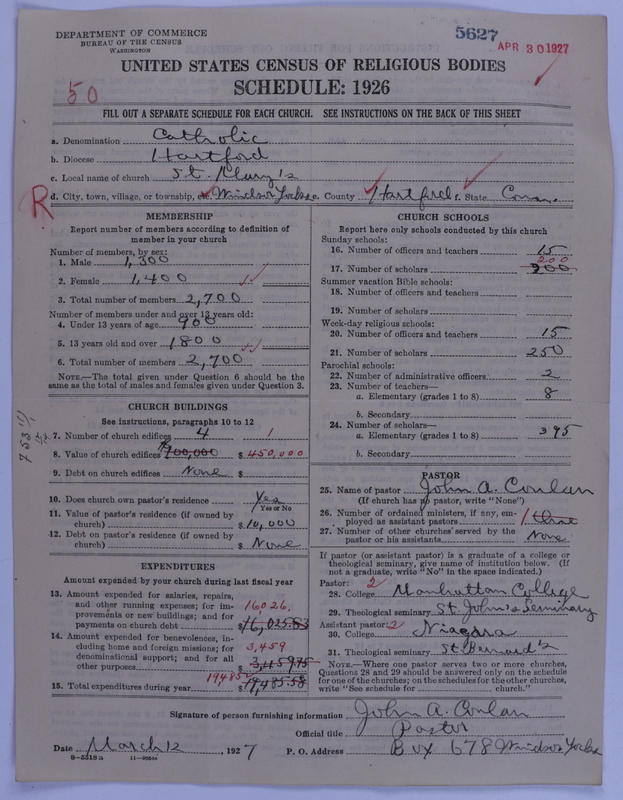 DEPARTMENT OF COMMERCE
BUREAU OF THE CENSUS
WASHINGTON
5627
APR 30 1927
UNITED STATES CENSUS OF RELIGIOUS BODIES
50
SCHEDULE: 1926
FILL OUT A SEPARATE SCHEDULE FOR EACH CHURCH. SEE INSTRUCTIONS ON THE BACK OF THIS SHEET
a. Denomination Catholic
b. Diocese Hartford
c. Local name of church St. Mary's
R d. City, town, village, or township, etc. Windsor Locks e. County Hartford f. State Conn.
MEMBERSHIP
Report number of members according to definition of
member in your church
Number of members, by sex:
1. Male 1,300
2. Female 1,400
3. Total number of members 2,700
Number of members under and over 13 years old:
4. Under 13 years of age 900
5. 13 years old and over 1800
6. Total number of members 2,700
NOTE.—The total given under Question 6 should be the
same as the total of males and females given under Question 3.
CHURCH BUILDINGS
See instructions, paragraphs 10 to 12
7. Number of church edifices 4 1
8. Value of church edifices $ 450,000
9. Debt on church edifices None $
10. Does church own pastor's residence Yes
Yes or No
11. Value of pastor's residence (if owned by
church) $ 10,000
12. Debt on pastor's residence (if owned by
church) $ None
EXPENDITURES
Amount expended by your church during last fiscal year
13. Amount expended for salaries, repairs,
and other running expenses; for im- 16026
provements or new buildings; and for
payments on church debt $ 16,025.83
14. Amount expended for benevolences, in-
cluding home and foreign missions; for 3,459
denominational support; and for all
other purposes 3,459.75
19485
15. Total expenditures during year $ 19,485.58
CHURCH SCHOOLS
Report here only schools conducted by this church
Sunday schools:
16. Number of officers and teachers 15
200
17. Number of scholars 900
Summer vacation Bible schools:
18. Number of officers and teachers
19. Number of scholars
Week-day religious schools:
20. Number of officers and teachers 15
21. Number of scholars 250
Parochial schools:
22. Number of administrative officers 2
23. Number of teachers—
a. Elementary (grades 1 to 8) 8
b. Secondary
24. Number of scholars—
a. Elementary (grades 1 to 8) 395
b. Secondary
PASTOR
25. Name of pastor John A. Conlan
(If church has no pastor, write "None")
26. Number of ordained ministers, if any, em-
ployed as assistant pastors 1 three
27. Number of other churches served by the
pastor or his assistants None
If pastor (or assistant pastor) is a graduate of a college or
theological seminary, give name of institution below. (If
not a graduate, write "No" in the space indicated.)
Pastor: 2
28. College Manhattan College
29. Theological seminary St John's Seminary
Assistant pastor: 2
30. College Niagara
31. Theological seminary St. Bernard's
NOTE.—Where one pastor serves two or more churches,
Questions 28 and 29 should be answered only on the schedule
for one of the churches; on the schedules for the other churches,
write "See schedule for church."
Signature of person furnishing information John A. Conlan
Official title Pastor
Date March 12, 1927 P. O. Address Box 678 Windsor Locks
8-5518a 11-9054a